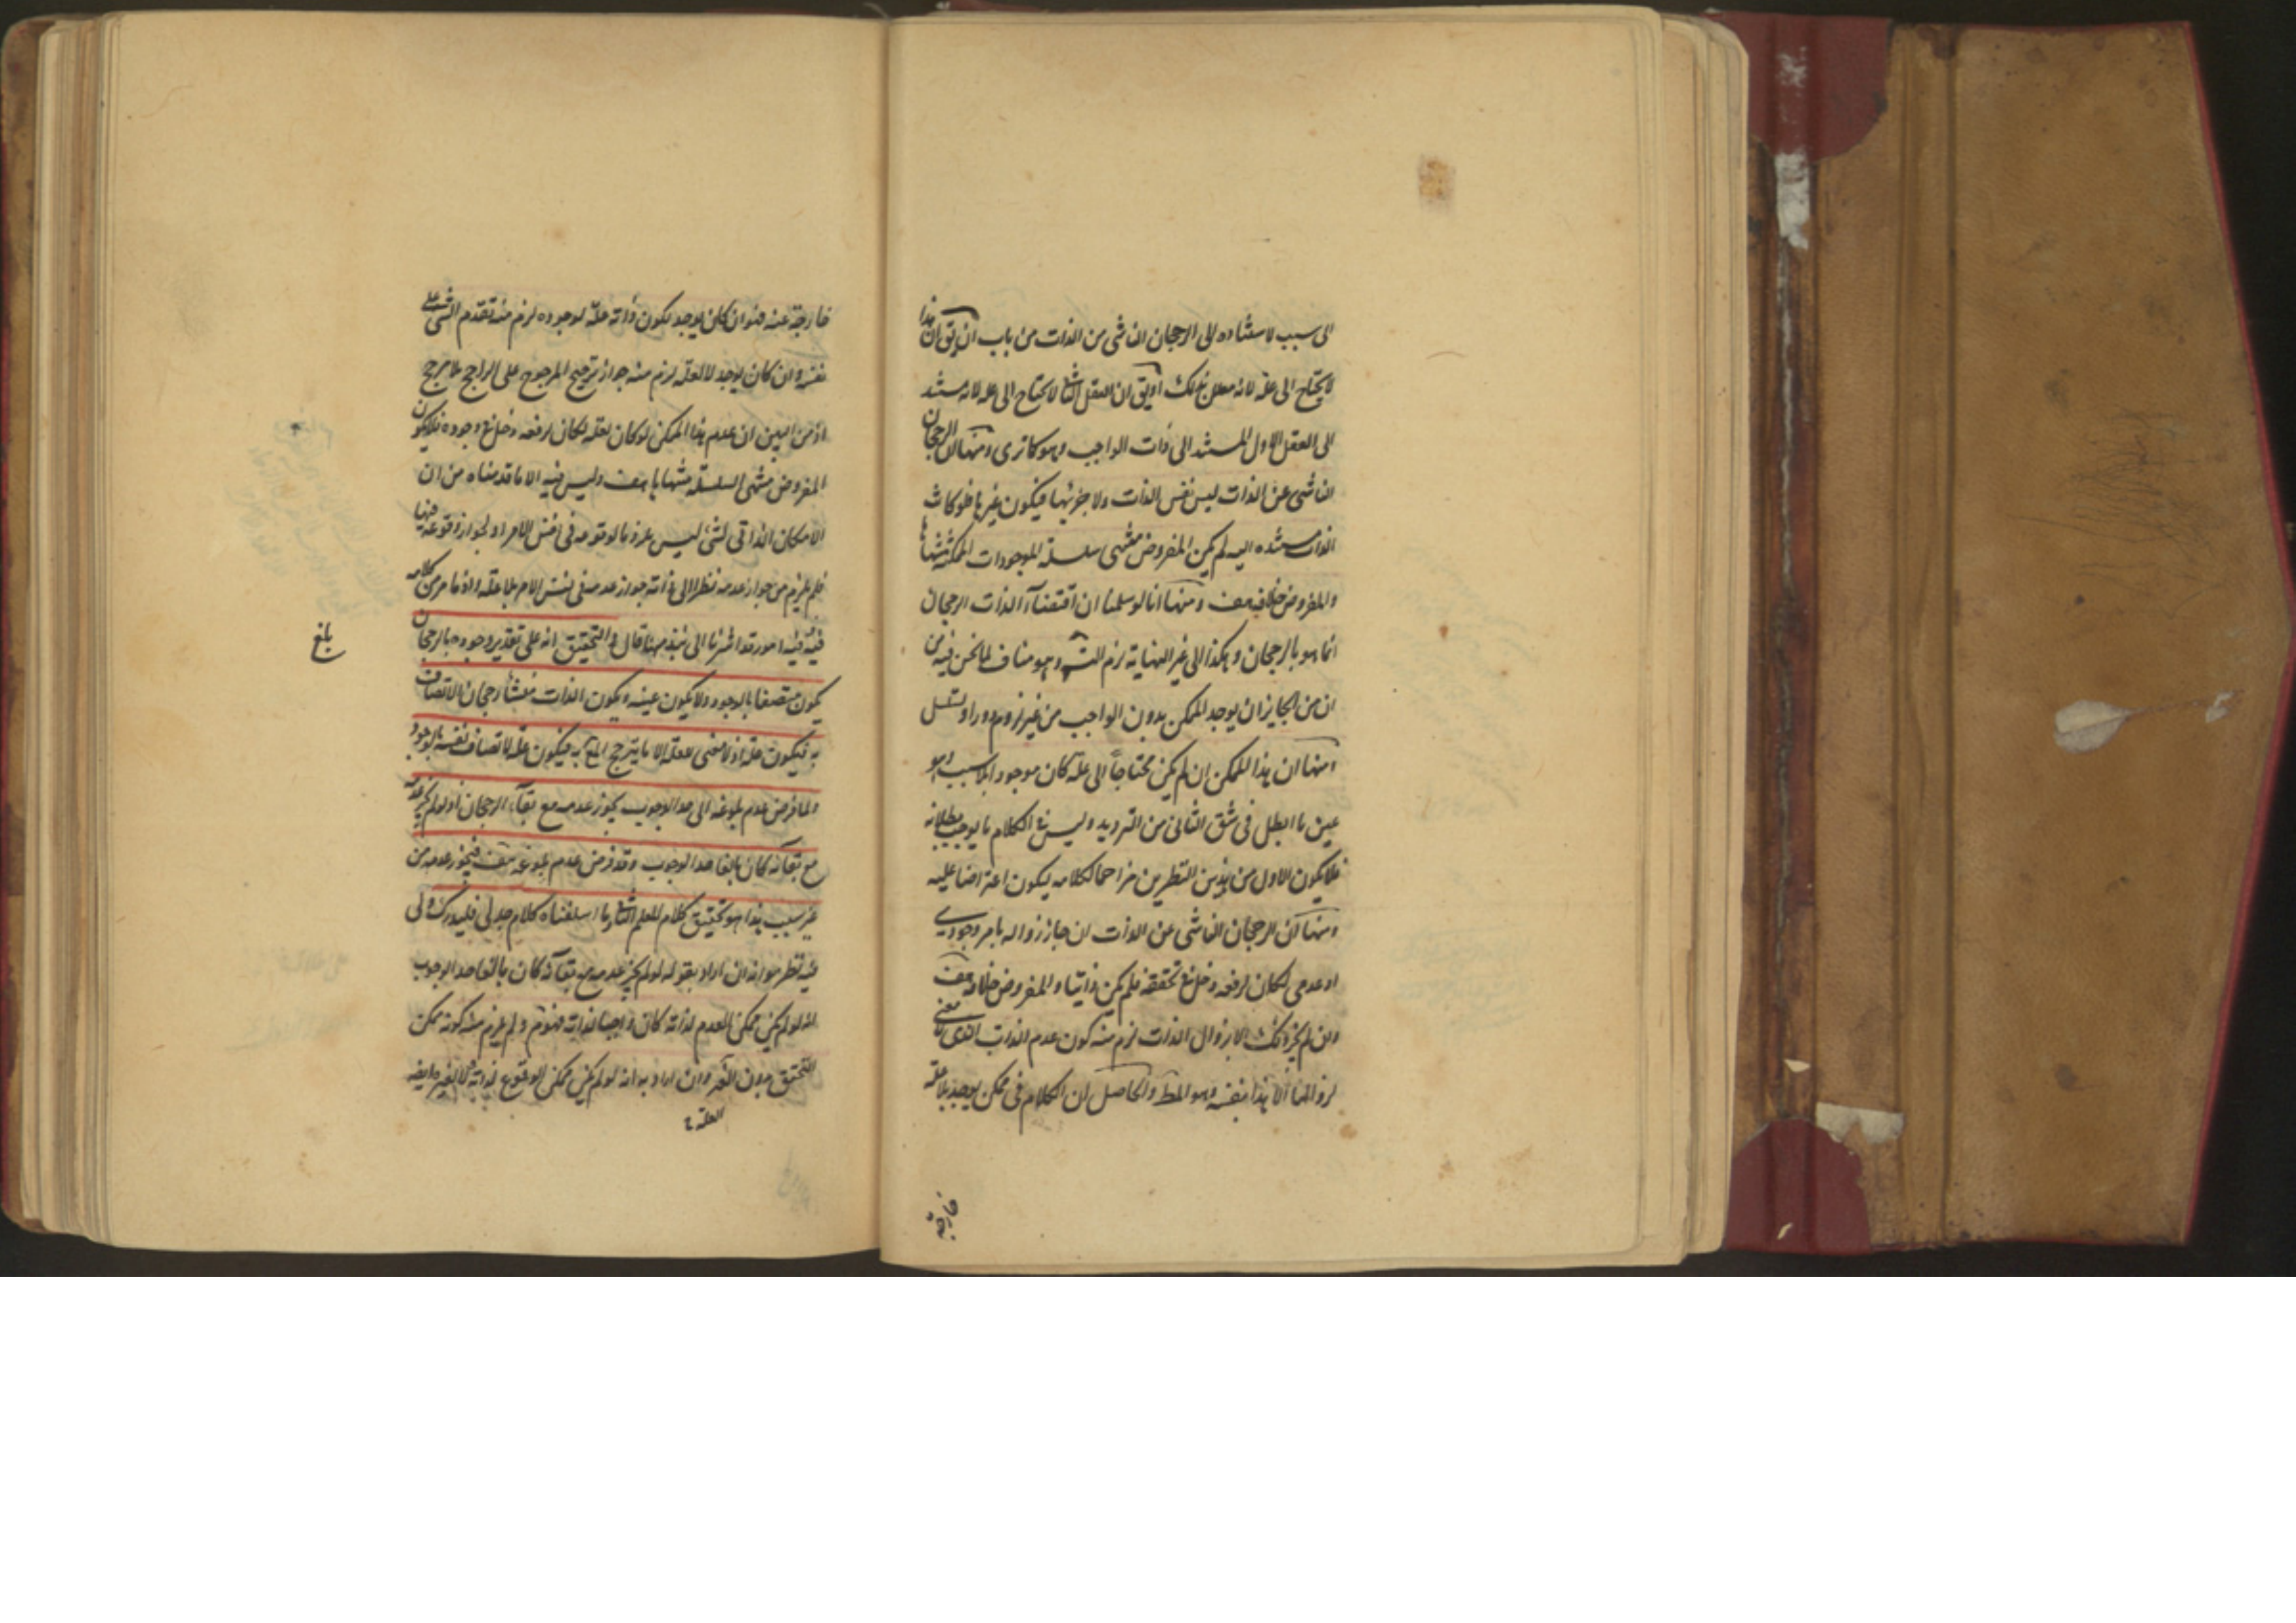 الى سبب لاستناده الى الرجحان الناشى من الذات من باب ان يق ان هذا
لا يحتاج الى علة لانه معلل بذلك او يق ان العقل الثانى لا يحتاج الى علة لانه مستند
الى العقل الاول المستند الى ذات الواجب وهو كما ترى ومنها ان الرجحان
الناشى عن الذات ليس نفس الذات ولا جزئها فيكون غيرها فلو كانت
الذات مستنده اليه لم يكن المفروض منتهى سلسلة الموجودات الممكنة منتهاها
والمفروض خلافه هف ومنها انا لو سلمنا ان اقتضاء الذات الرجحان
انما هو بالرجحان وهكذا الى غير النهاية لزم التس وهو مناف لما نحن فيه من
ان من الجايز ان يوجد الممكن بدون الواجب من غير لزوم دور او تسلسل
ومنها ان هذا الممكن ان لم يكن محتاجاً الى علة كان موجودا بلا سبب وهو
عين ما ابطل فى شق الثانى من الترديد وليس فى الكلام ما يوجب بطلانه
فلا يكون الاول من هذين النظرين مزاحما لكلامه ليكون اعتراضا عليه
ومنها ان الرجحان الناشى عن الذات ان جاز زواله بامر وجودى
او عدمى لكان لرفعه دخل فى تحققه فلم يكن ذاتيا والمفروض خلافه هف
وان لم يجز ذلك الا بزوال الذات لزم منه كون عدم الذات الذى لا معنى
لزوالها الا هذا بنفسه وهو المط والحاصل ان الكلام فى ممكن يوجد بلا علة
خارجة
خارجة عنه فهو ان كان يوجد بكون ذاته علة لوجوده لزم منه تقدم الشئ على
نفسه وان كان يوجد لا لعلة لزم منه جواز ترجيح المرجوح على الراجح بلا مرجح
اذ من البين ان عدم هذا الممكن لو كان لعلة لكان لرفعه دخل فى وجوده فلا يكون
المفروض منتهى السلسلة منتهاها هف وليس فيه الا ما قدمناه من ان
الامكان الذاتى لشئ ليس ملزوما لوقوعه فى نفس الامر او لجواز وقوعه فيها
فلم يلزم من جواز عدمه نظرا الى ذاته جواز عدمه فى نفس الامر بلا علة واذ ما مر من كلامه
فيه امور قد اشرنا الى نبذ منها قال والتحقيق انه على تقدير وجوده بالرجحان
يكون متصفا بالوجود ولا يكون عينه ويكون الذات منشأ رجحان الاتصاف
به فيكون علة اذ لا معنى للعلة الا ما يترجح المع به فيكون علة لاتصاف نفسه بالوجود
ولما فرض عدم بلوغه الى حد الوجوب يجوز عدمه مع بقاء الرجحان اذ لو لم يجز عدمه
مع بقائه كان بالغا حد الوجوب وقد فرض عدم بلوغه هف فيجوز عدمه من
غير سبب هذا هو تحقيق كلام المعلم الثانى وما اسلفناه كلام جدلى فليدرك ولى
فيه نظر هو انه ان اراد بقوله لو لم يجز عدمه مع بقائه كان بالغا حد الوجوب
انه لو لم يكن ممكن العدم لذاته كان واجبا لذاته فهو مم ولم يلزم منه كونه ممكن
التحقق بدون العلة وان اراد به انه لو لم يكن ممكن الوقوع لذاته او لا لغيره
العلة
بلغ